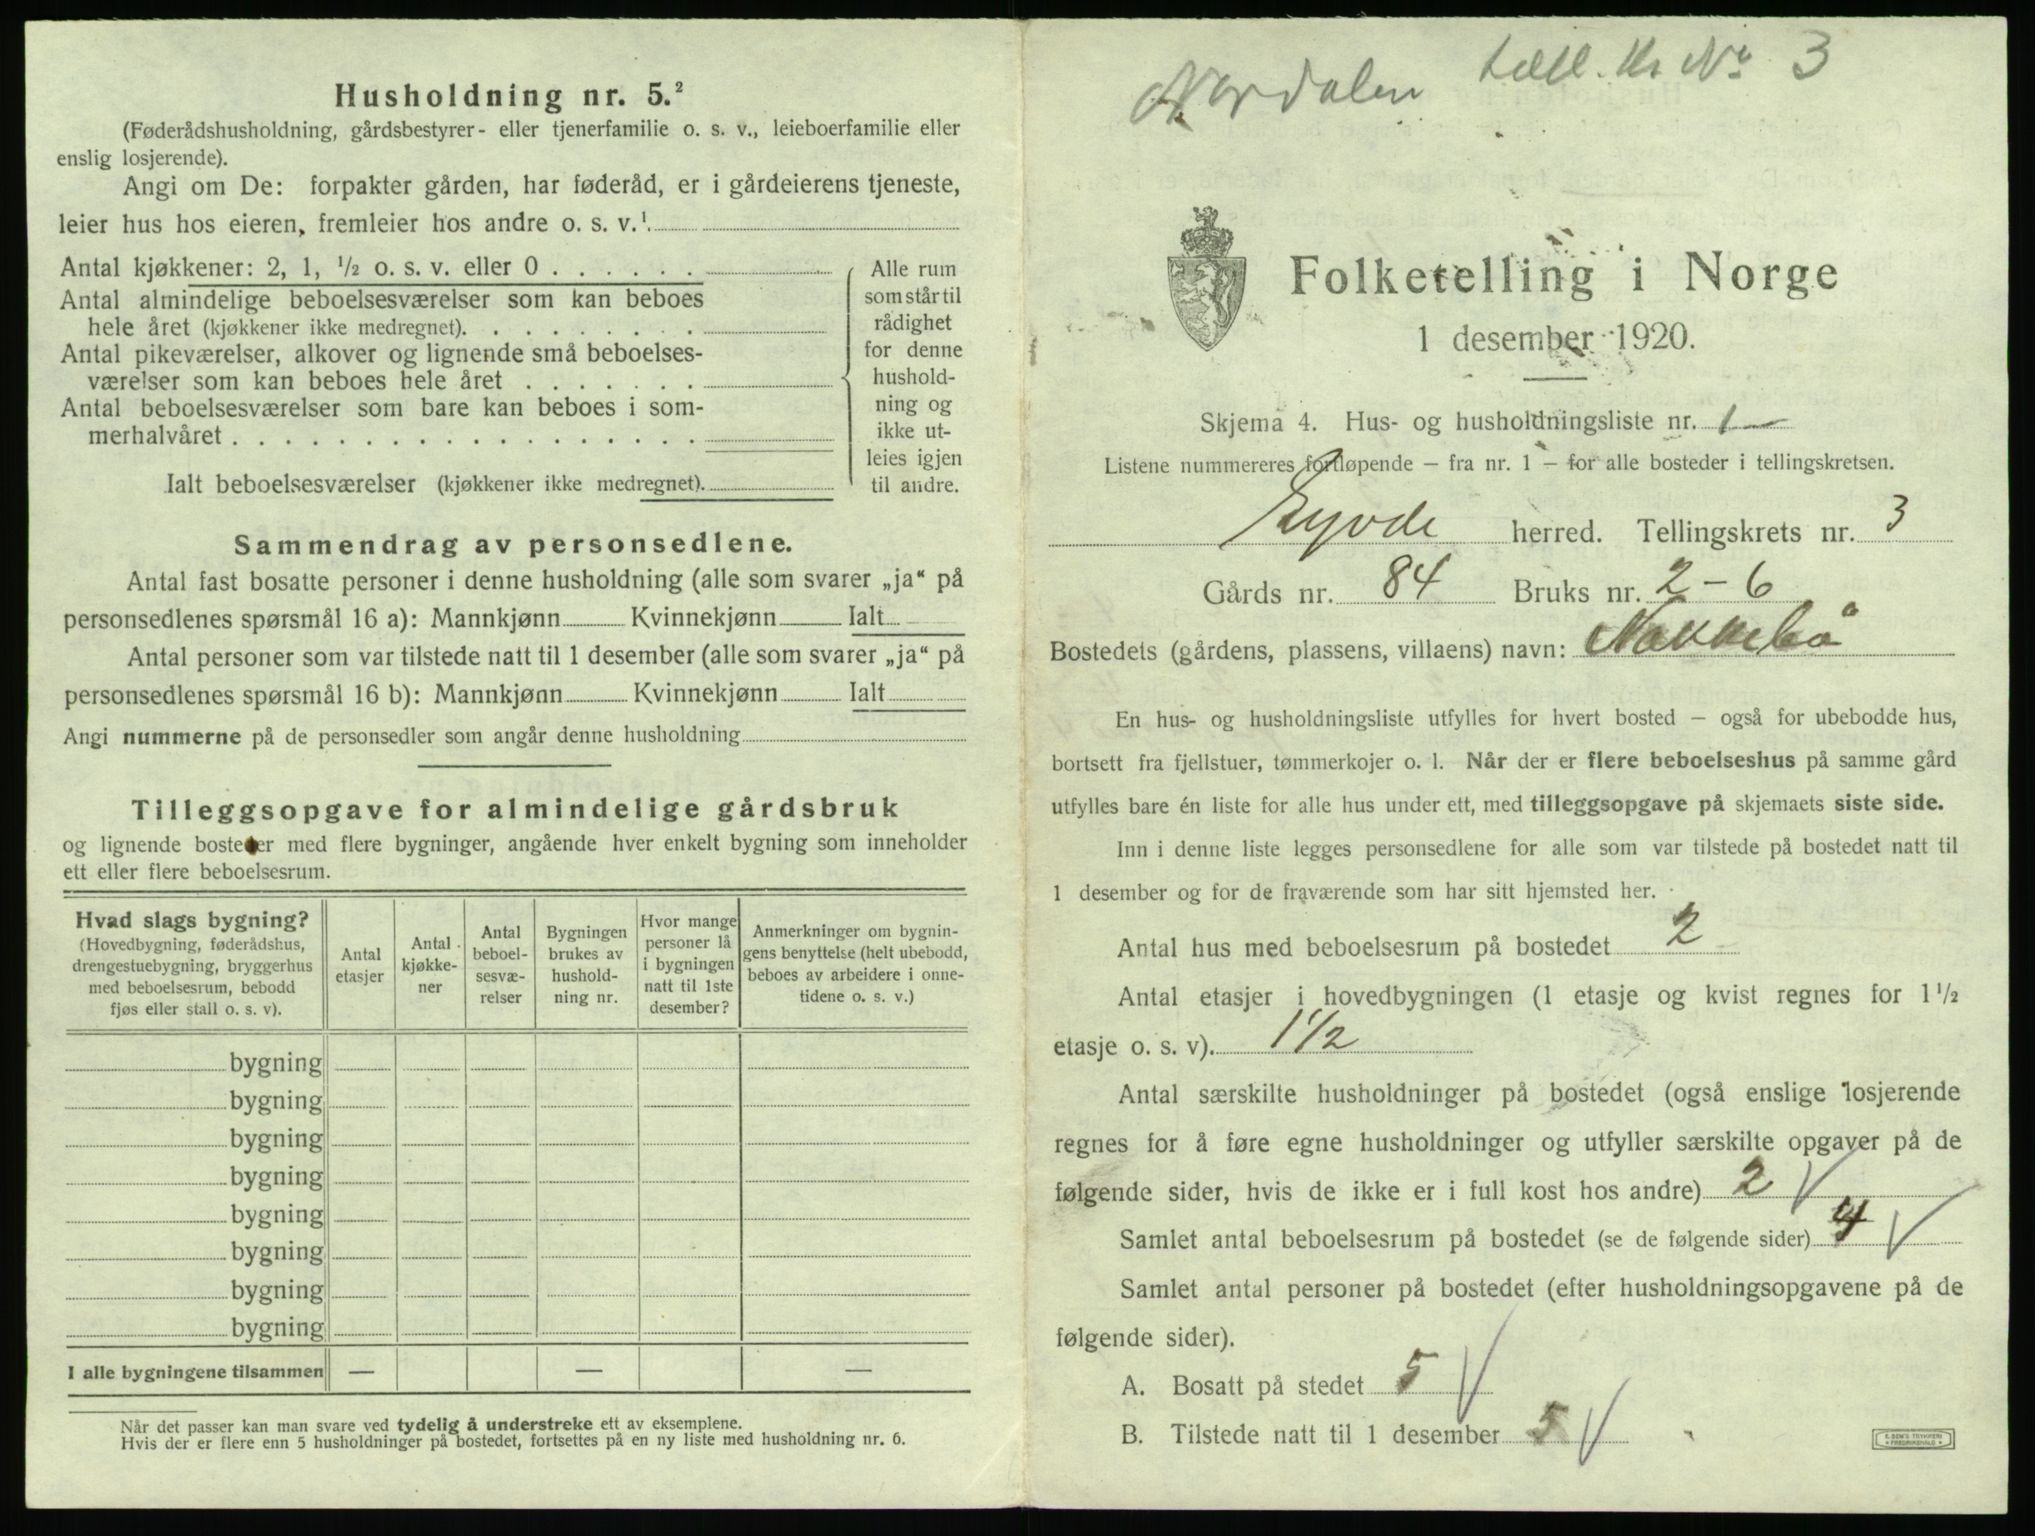 Husholdning nr. 5.²
(Føderådshusholdning, gårdsbestyrer- eller tjenerfamilie o. s. v., leieboerfamilie eller
enslig losjerende).
Angi om De: forpakter gården, har føderåd, er i gårdeierens tjeneste,
leier hus hos eieren, fremleier hos andre o. s. v.¹
Antal kjøkkener: 2, 1, ½ o. s. v. eller 0 . . . . . .
Antal almindelige beboelsesværelser som kan beboes
hele året (kjøkkener ikke medregnet). . . . . . . . .
Antal pikeværelser, alkover og lignende små beboelses-
værelser som kan beboes hele året . . . . . . .
Antal beboelsesværelser som bare kan beboes i som-
merhalvåret . . . . . . . . . . . . . . . . . .
Alle rum
som står til
rådighet
for denne
hushold-
ning og
ikke ut-
leies igjen
til andre.
Ialt beboelsesværelser (kjøkkener ikke medregnet).
Sammendrag av personsedlene.
Antal fast bosatte personer i denne husholdning (alle som svarer „ja“ på
personsedlenes spørsmål 16 a): Mannkjønn Kvinnekjønn Ialt
Antal personer som var tilstede natt til 1 desember (alle som svarer „ja“ på
personsedlenes spørsmål 16 b): Mannkjønn Kvinnekjønn Ialt
Angi nummerne på de personsedler som angår denne husholdning
Tilleggsopgave for almindelige gårdsbruk
og lignende bosteder med flere bygninger, angående hver enkelt bygning som inneholder
ett eller flere beboelsesrum.
Hvad slags bygning?
(Hovedbygning, føderådshus,
drengestuebygning, bryggerhus
med beboelsesrum, bebodd
fjøs eller stall o. s. v).
Antal
etasjer
Antal
kjøkke-
ner
Antal
beboel-
sesvæ-
relser
Bygningen
brukes av
hushold-
ning nr.
Hvor mange
personer lå
i bygningen
natt til 1ste
desember?
Anmerkninger om bygnin-
gens benyttelse (helt ubebodd,
beboes av arbeidere i onne-
tidene o. s. v.)
bygning
bygning
bygning
bygning
bygning
bygning
bygning
bygning
I alle bygningene tilsammen — — —
Når det passer kan man svare ved tydelig å understreke ett av eksemplene.
Hvis der er flere enn 5 husholdninger på bostedet, fortsettes på en ny liste med husholdning nr. 6.
Nordalen tell. kr No 3
Folketelling i Norge
1 desember 1920.
Skjema 4. Hus- og husholdningsliste nr. 1
Listene nummereres fortløpende – fra nr. 1 – for alle bosteder i tellingskretsen.
herred. Tellingskrets nr. 3
Gårds nr. 84 Bruks nr. 2 – 6
Bostedets (gårdens, plassens, villaens) navn:
En hus- og husholdningsliste utfylles for hvert bosted – også for ubebodde hus,
bortsett fra fjellstuer, tømmerkojer o. l. Når der er flere beboelseshus på samme gård
utfylles bare én liste for alle hus under ett, med tilleggsopgave på skjemaets siste side.
Inn i denne liste legges personsedlene for alle som var tilstede på bostedet natt til
1 desember og for de fraværende som har sitt hjemsted her.
Antal hus med beboelsesrum på bostedet 2
Antal etasjer i hovedbygningen (1 etasje og kvist regnes for 1½
etasje o. s. v). 1 1/2
Antal særskilte husholdninger på bostedet (også enslige losjerende
regnes for å føre egne husholdninger og utfyller særskilte opgaver på de
følgende sider, hvis de ikke er i full kost hos andre) 2
Samlet antal beboelsesrum på bostedet (se de følgende sider) 4
Samlet antal personer på bostedet (efter husholdningsopgavene på de
følgende sider).
A. Bosatt på stedet 5
B. Tilstede natt til 1 desember 5